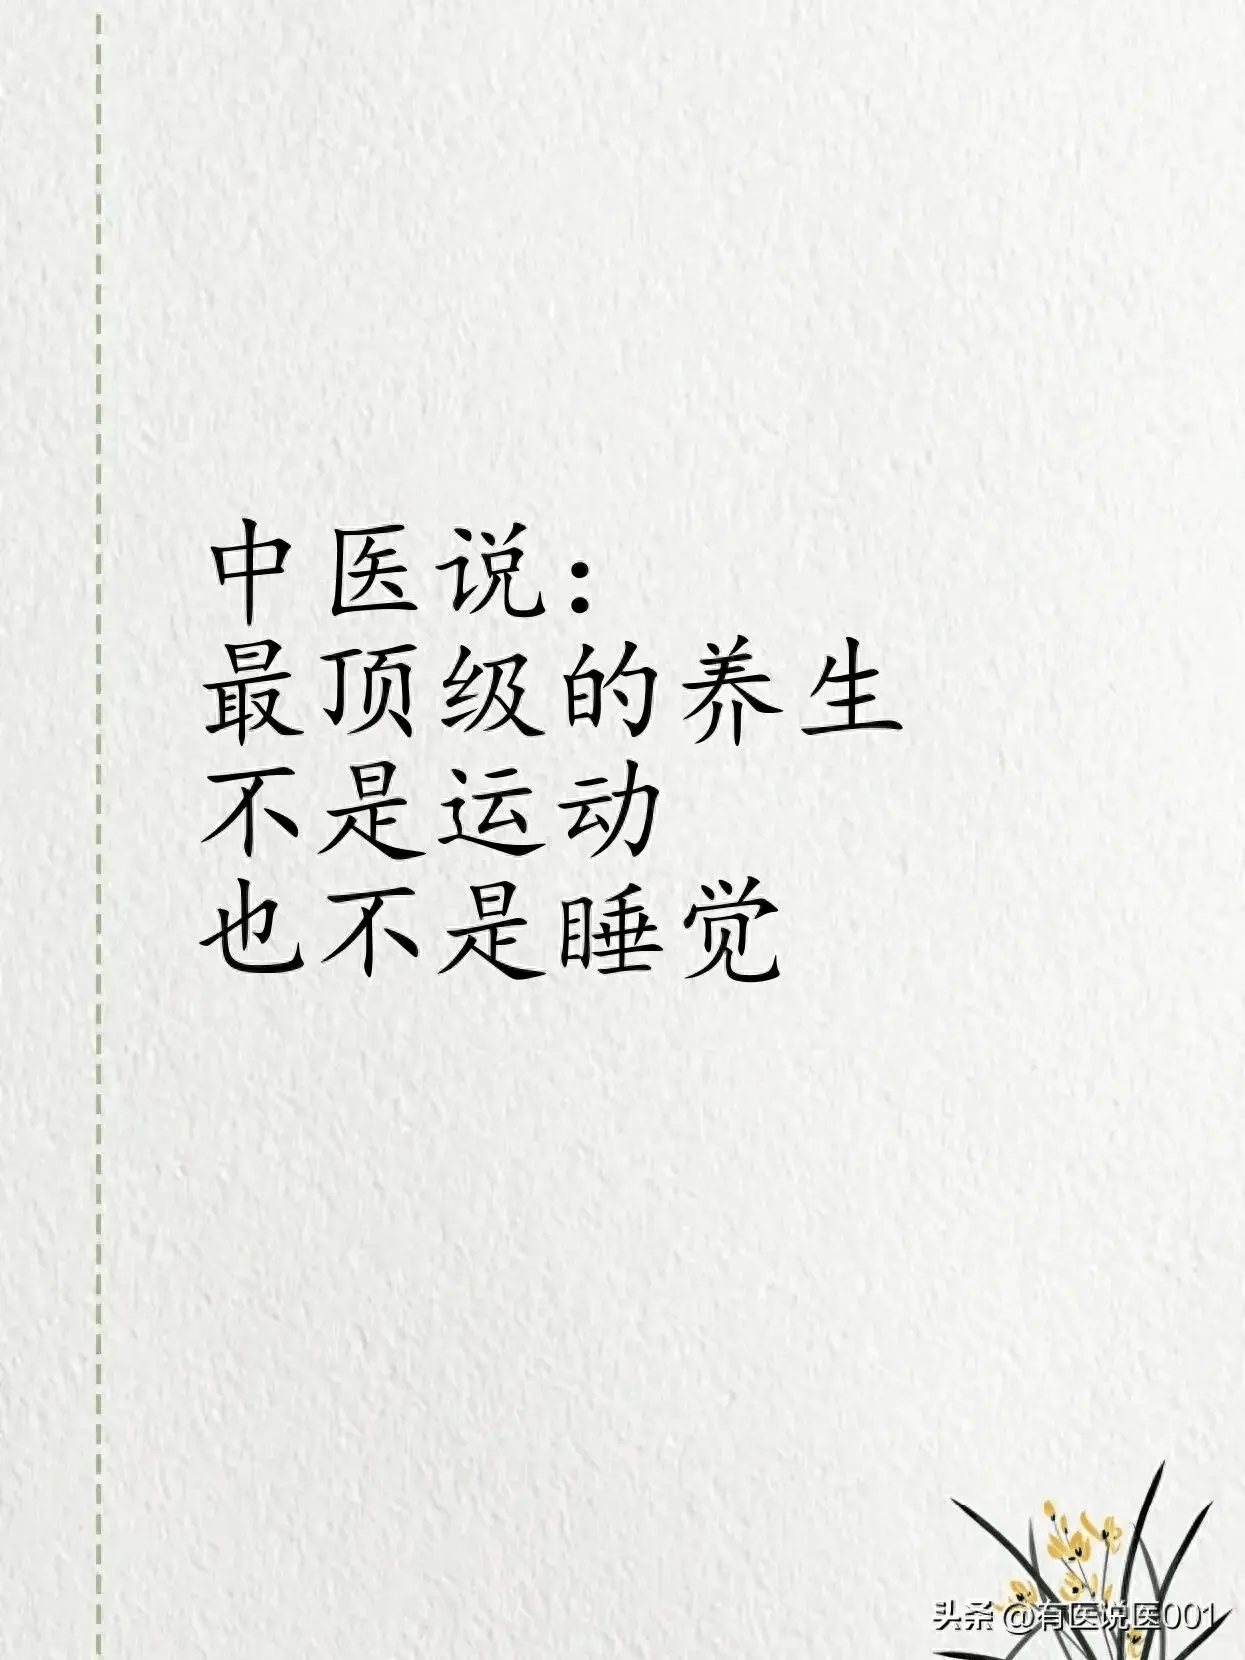 中医说：
最顶级的养生
不是运动
也不是睡觉
头条 @有医说医001